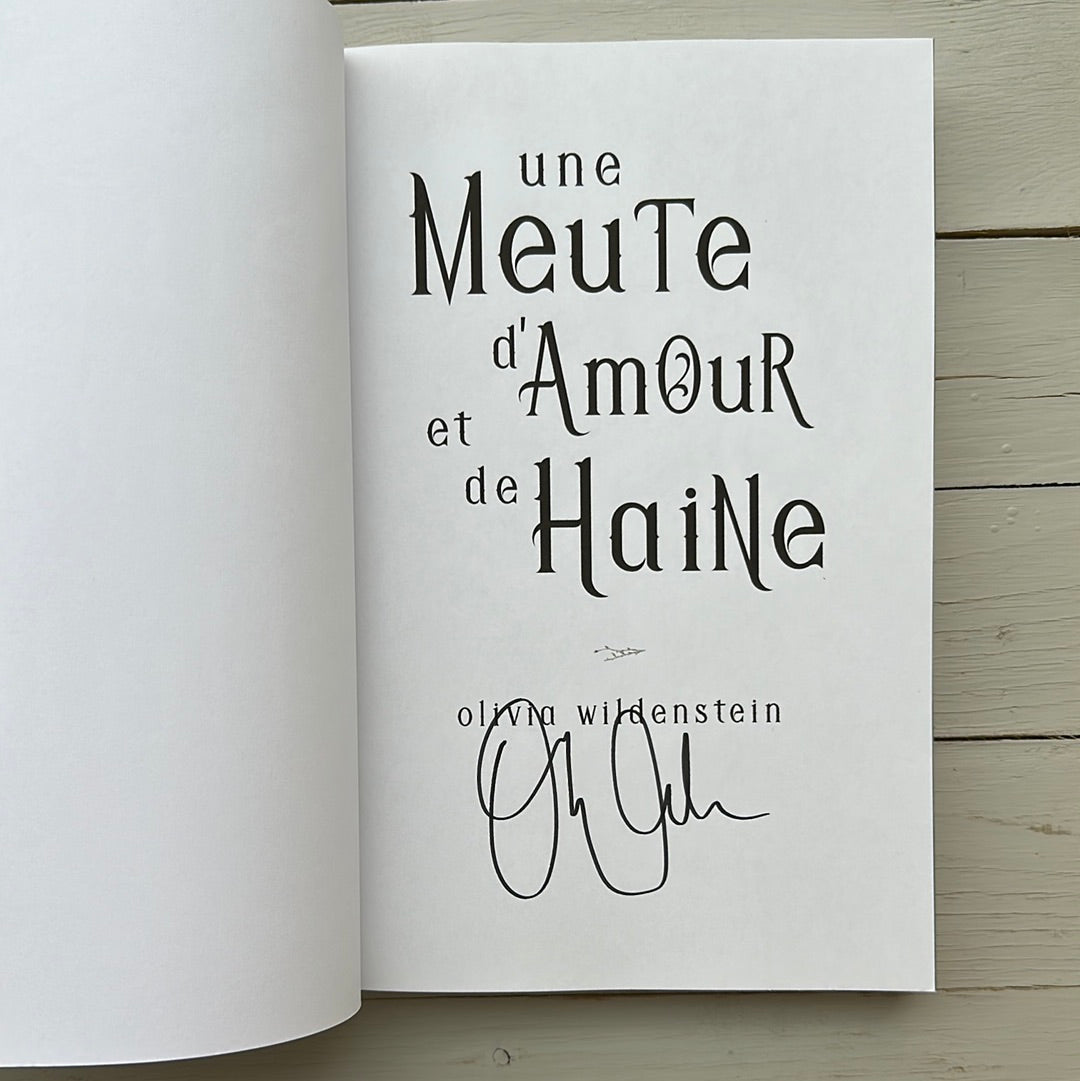 une
MeuTe
d'AmOuR
et
de HaiNe
olivia wildenstein